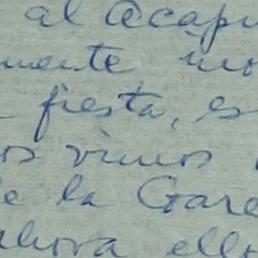 al Acapu
mente
fiesta, es
os vimos
de la Gare
ahora ello